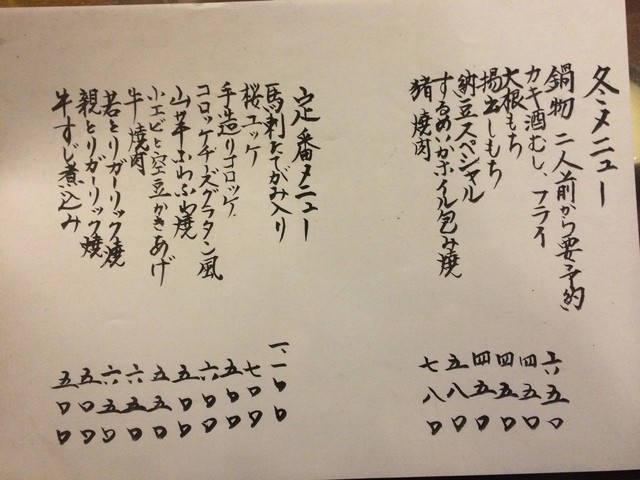 冬メニュー
鍋物 二人前から要予約
カキ酒むし、フライ 六五〇
大根もち 四五〇
揚出しもち 四五〇
納豆スペシャル 四五〇
するめいかホイル包み焼 五八〇
猪焼肉 七八〇
定番メニュー
馬刺たてがみ入り 一、一〇〇
桜ユッケ 七〇〇
手造りコロッケ 五〇〇
コロッケチーズグラタン風 六〇〇
山芋ふわふわ焼 五〇〇
小エビと空豆かきあげ 五五〇
牛焼肉 六五〇
若とりガーリック焼 六五〇
親とりガーリック焼 五〇〇
牛すじ煮込み 五〇〇